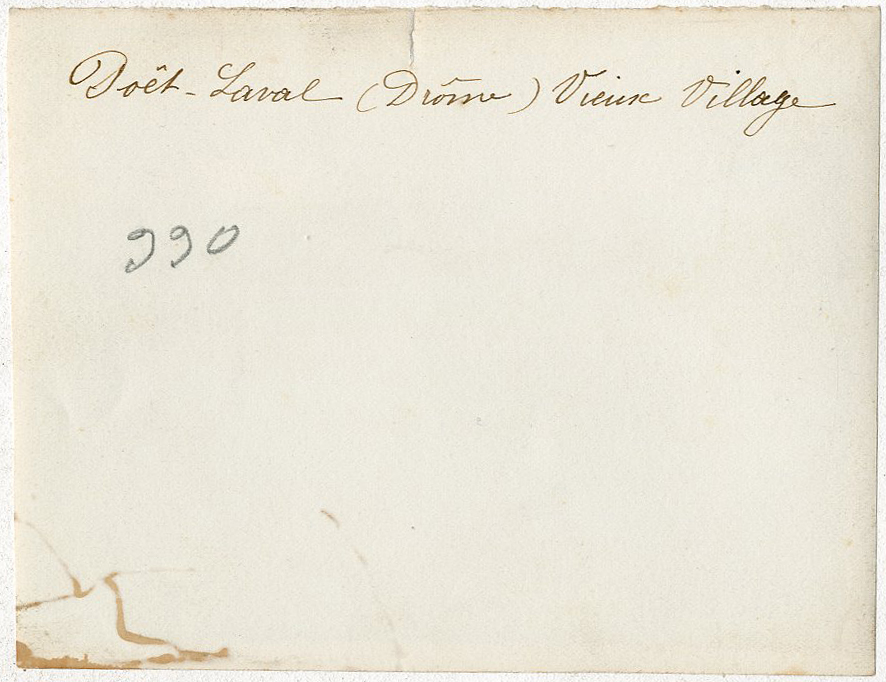 Poët-Laval (Drôme) Vieux Village
990